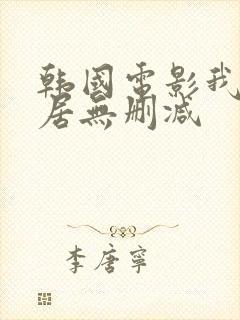 韩国电影我
居無删减
李唐寧